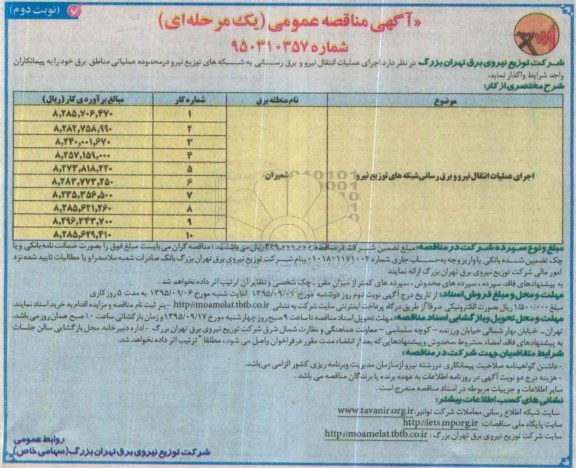 (نوبت دوم)
«آگهی مناقصه عمومی (یک مرحله‌ای)
شماره ۹۵۰۳۱۰۳۵۷
شرکت توزیع نیروی برق تهران بزرگ در نظر دارد اجرای عملیات انتقال نیرو و برق رسانی به شبکه های توزیع نیرو درمحدوده عملیاتی مناطق برق خود را به پیمانکاران
واجد شرایط واگذار نماید.
شرح مختصری از کار:
موضوع نام منطقه برق شماره کار مبالغ برآوردی کار (ریال)
۱ ۸,۲۸۵,۷۰۶,۴۷۰
۲ ۸,۲۸۲,۷۵۸,۹۹۰
۳ ۸,۲۴۰,۰۰۱,۶۷۰
۴ ۸,۲۵۷,۱۵۹,۰۰۰
اجرای عملیات انتقال نیرو و برق رسانی شبکه های توزیع نیرو شمیران ۵ ۸,۲۷۳,۸۱۸,۲۲۰
۶ ۸,۲۸۳,۷۷۳,۲۵۰
۷ ۸,۲۳۵,۳۵۶,۵۰۰
۸ ۸,۲۸۵,۶۲۱,۲۶۰
۹ ۸,۲۹۶,۲۴۳,۷۰۰
۱۰ ۸,۲۸۵,۶۲۹,۴۱۰
مبلغ و نوع سپرده شرکت در مناقصه: مبلغ تضمین شرکت در مناقصه ریال می باشد. مناقصه گران می بایست مبلغ فوق را بصورت ضمانت نامه بانکی و یا
چک تضمین شده بانکی یا واریز وجه به حساب جاری شماره بنام شرکت توزیع نیروی برق تهران بزرگ بانک صادرات شعبه ملاصدرا و یا مطالبات تایید شده نزد
امور مالی شرکت توزیع نیروی برق تهران بزرگ ارائه نمایند
به پیشنهادهای فاقد سپرده، سپرده های مخدوش، سپرده های کمتر از میزان مقرر، چک شخصی و نظایر آن ترتیب اثر داده نخواهد شد.
مهلت و محل و مبلغ فروش اسناد: از تاریخ درج آگهی نوبت دوم روز دوشنبه مورخ ۱۳۹۵/۰۹/۰۱ لغایت شنبه مورخ ۱۳۹۵/۰۹/۰۶ به مدت ۵ روز کاری
مبلغ ۱۵۰,۰۰۰ ریال بصورت الکترونیکی صرفاً از طریق درگاه پرداخت اینترنتی سایت شرکت به نشانی http//moamelat.tbtb.co.ir ثبت نام مناقصه و مزایده اقدام به خرید اسناد نمایند.
مهلت و محل تحویل و بازگشایی اسناد مناقصه: مهلت تحویل اسناد مناقصه تا ساعت ۹ صبح روز چهارشنبه مورخ ۱۳۹۵/۰۹/۱۷ و زمان بازگشائی ساعت ۱۰ صبح همان روز می باشد.
تهران - خیابان بهار شمالی خیابان ورزنده - کوچه سلماسی - معاونت هماهنگی و نظارت شمال شرق شرکت توزیع نیروی برق تهران بزرگ - اداره دبیرخانه، محل بازگشایی سالن جلسات
به پیشنهادهای فاقد امضاء مشروط مخدوش و پیشنهادهایی که بعد از انقضاء مدت مقرر در فراخوان واصل می شود، مطلقاً ترتیب اثر داده نخواهد شد.
شرایط متقاضیان جهت شرکت در مناقصه:
- داشتن گواهینامه صلاحیت پیمانکاری دررشته نیرو ازسازمان مدیریت وبرنامه ریزی کشور الزامی می‌باشد.
- هزینه درج دو نوبت آگهی در روزنامه اطلاعات به عهده برنده یا برندگان مناقصه می باشد.
سایر اطلاعات و جزییات مربوطه در اسناد مناقصه مندرج است.
نشانی های کسب اطلاعات بیشتر:
سایت شبکه اطلاع رسانی معاملات شرکت توانیر: www.tavanir.org.ir
سایت پایگاه ملی مناقصات: http://iets.mporg.ir
سایت شرکت توزیع نیروی برق تهران بزرگ: http://moamelat.tbtb.co.ir
روابط عمومی
شرکت توزیع نیروی برق تهران بزرگ (سهامی خاص)